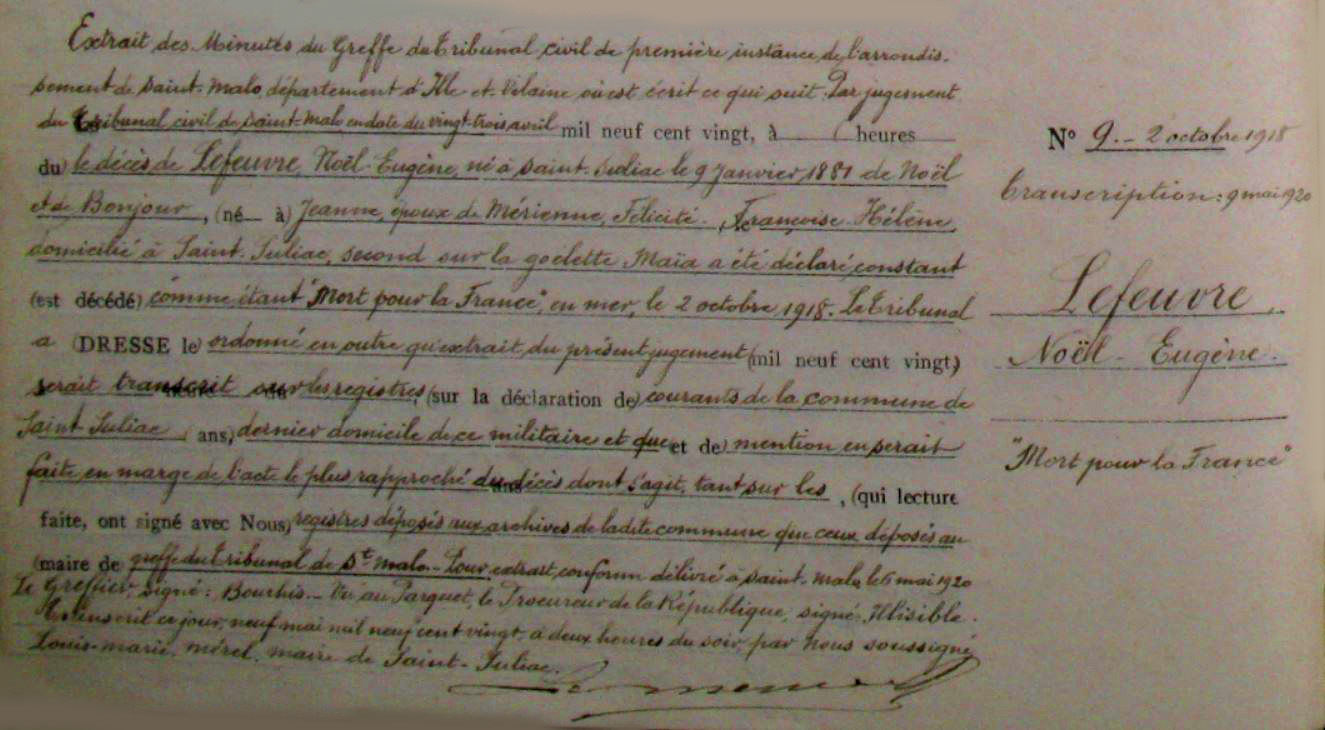 Extrait des Minutes du Greffe du Tribunal civil de première instance de l'arrondis-
sement de Saint-Malo, département d'Ille-et-Vilaine où est écrit ce qui suit. Par jugement
du Tribunal civil de Saint-Malo en date du vingt-trois avril mil neuf cent vingt, à heures
du le décès de Lefeuvre, Noël-Eugène, né à Saint-Suliac le 9 Janvier 1881 de Noël
et de Bonjour, (né à) Jeanne, époux de Mérienne, Félicité-Françoise-Hélène,
domicilié à Saint-Suliac, second sur la goëlette Maïa a été déclaré constant
(est décédé) comme étant "Mort pour la France", en mer, le 2 octobre 1918. Le Tribunal
a (DRESSE le) ordonné en outre qu'extrait du présent jugement (mil neuf cent vingt)
serait transcrit sur les registres, (sur la déclaration de) courants de la commune de
Saint-Suliac ( ans,) dernier domicile de ce militaire et que et de) mention en serait
faite en marge de l'acte le plus rapproché du décès dont s'agit, tant sur les, (qui lecture
faite, ont signé avec Nous,) registres déposés aux archives de ladite commune que ceux déposés au
(maire de greffe du Tribunal de St Malo.- Pour extrait conforme délivré à Saint-Malo, le 6 mai 1920
Le Greffier, signé: Bourchis.- Vu au Parquet, le Procureur de la République, signé, Illisible.
Transcrit ce jour, neuf mai mil neuf cent vingt, à deux heures du soir, par Nous soussigné
Louis-Marie, Mérel, maire de Saint-Suliac.
N° 9.- 2 octobre 1918
Transcription: 9 mai 1920
Lefeuvre,
Noël-Eugène.
"Mort pour la France"